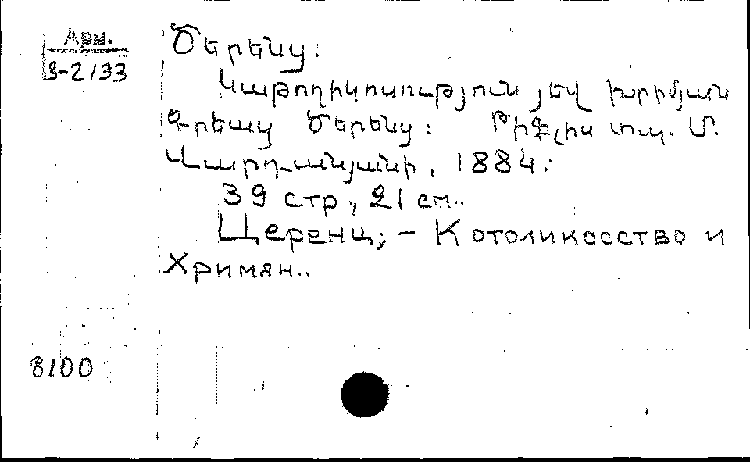 Арм.
9-2133
Ծերենց:
Կաթողիկոսություն յեվ Խրիմյան
Գրեաց Ծերենց: Թիֆլիս տպ. Մ.
Վարդանյանի, 1884:
39 стр, 21 см..
Церенц, - Котоликосство и
Хримян..
8100